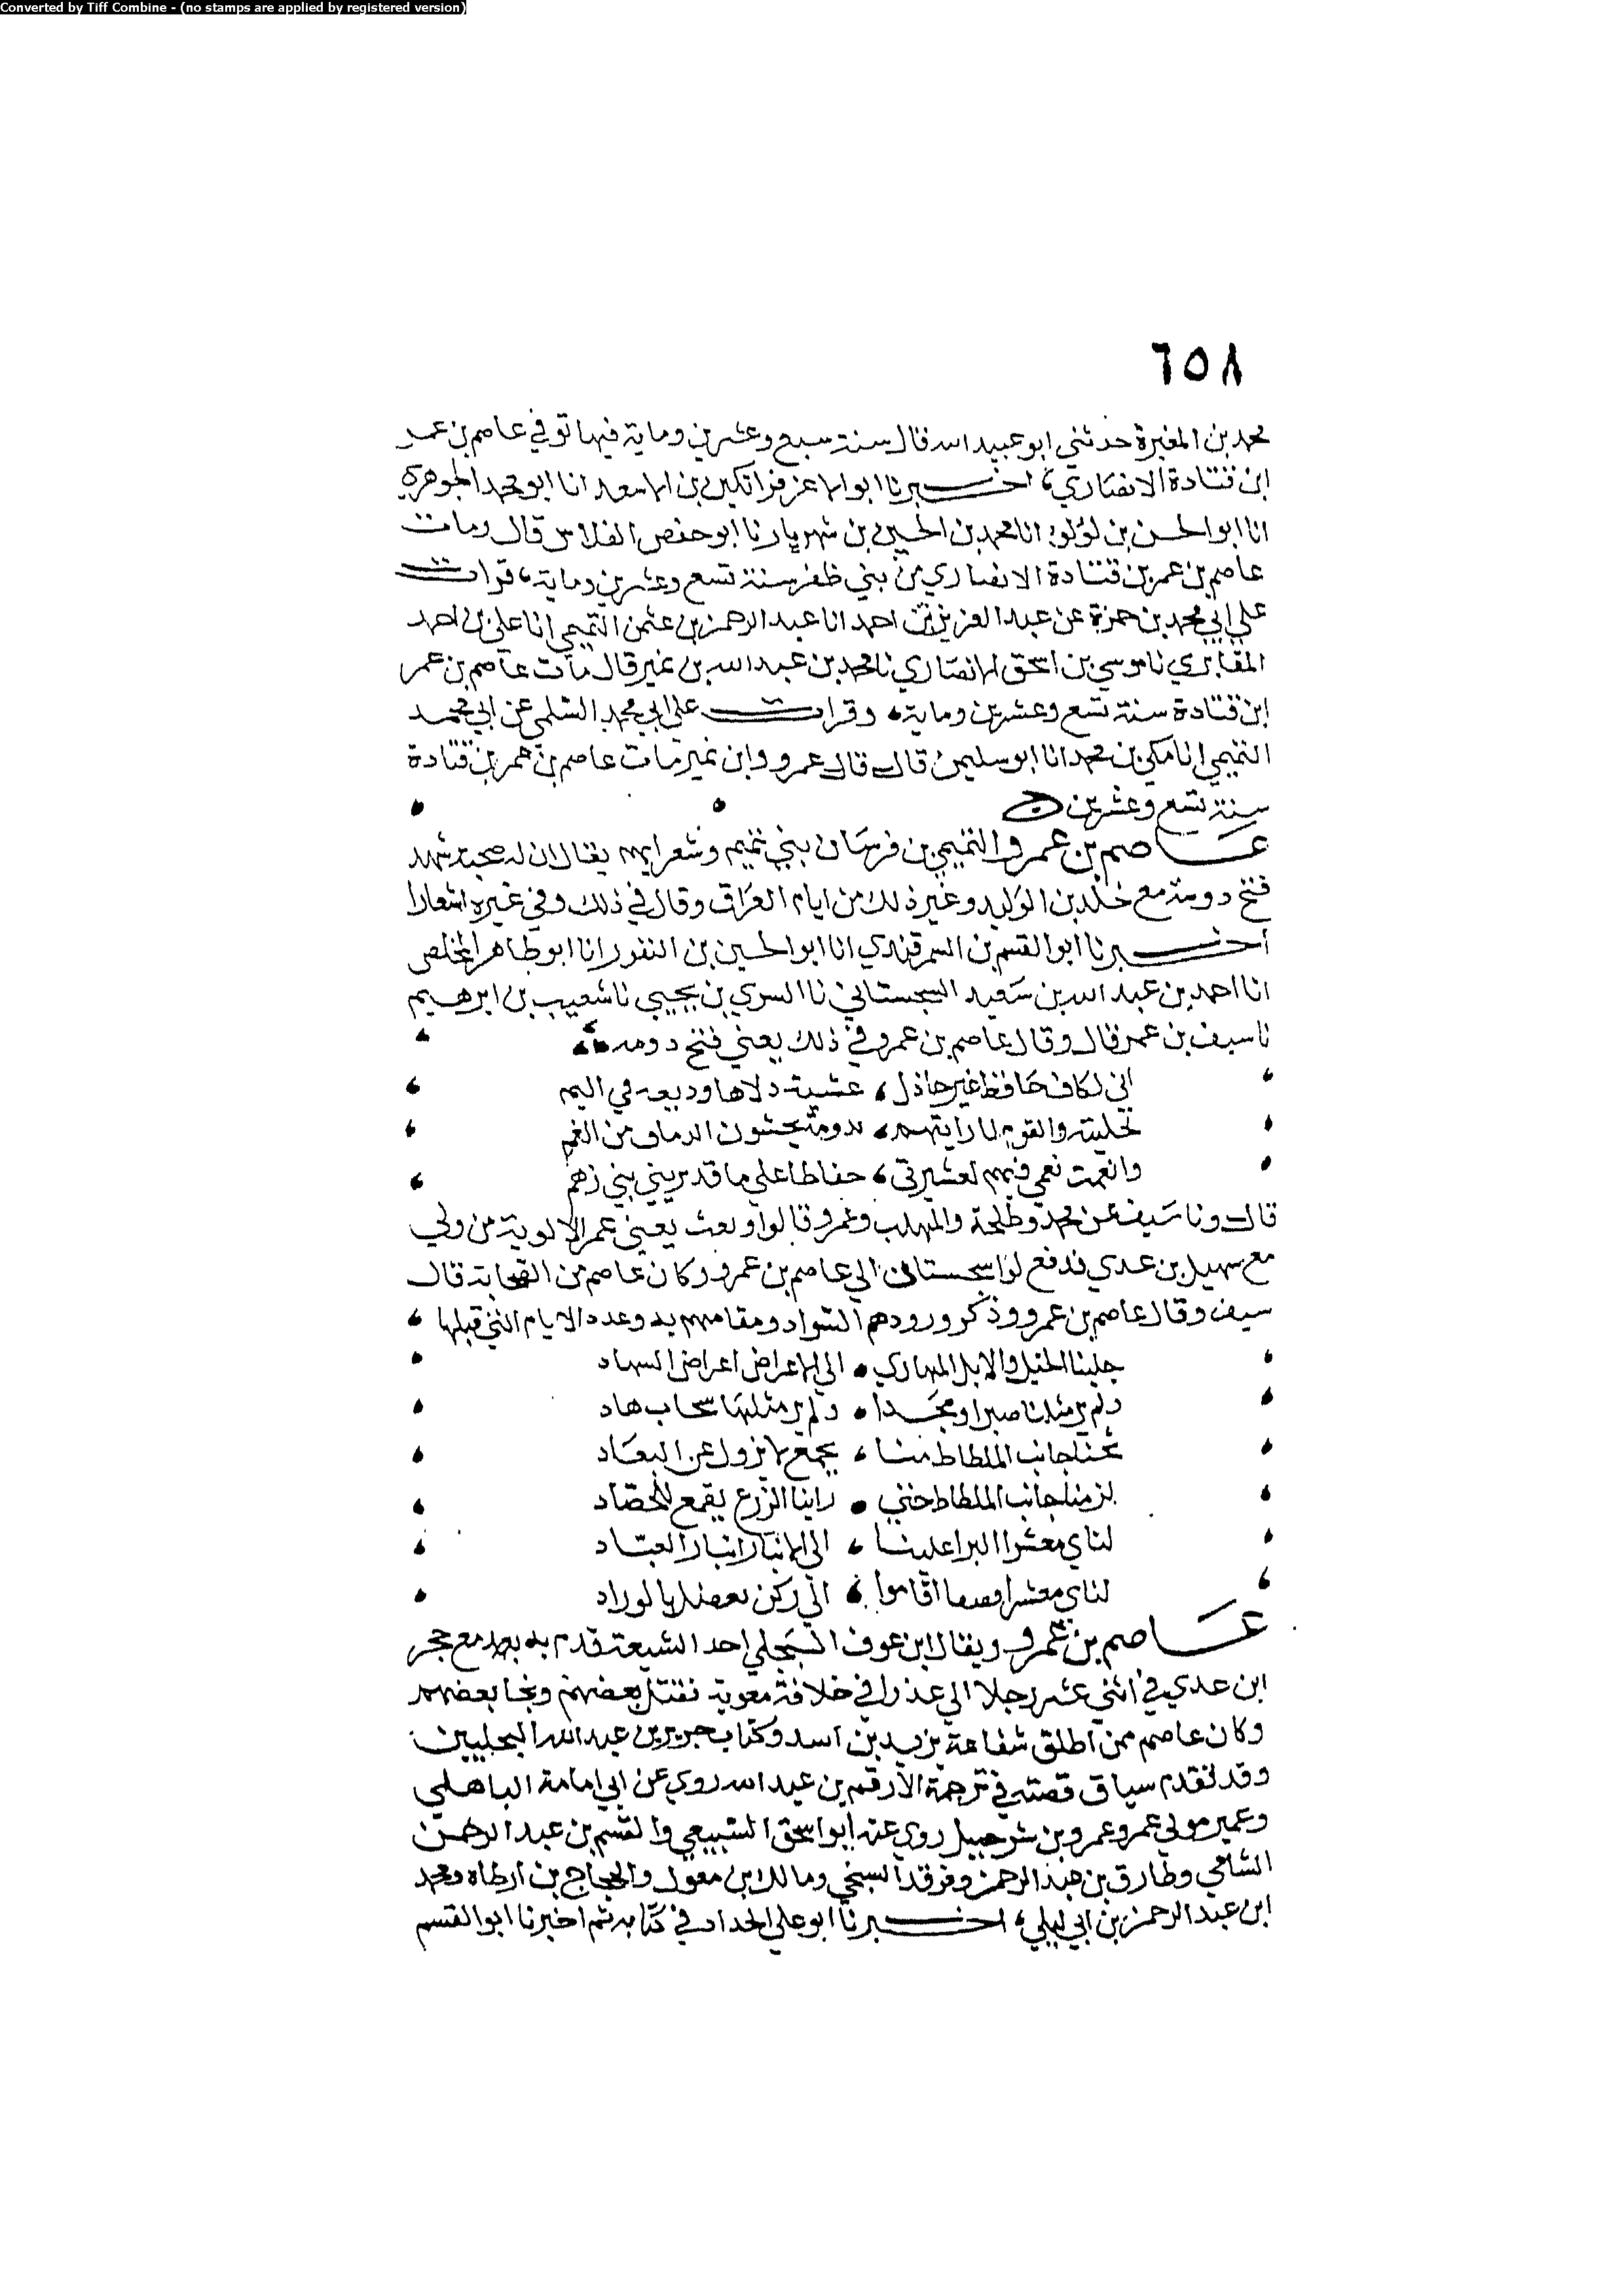 Converted by Tiff Combine - (no stamps are applied by registered version)
٦٥٨
محمد بن المغيرة حدثني ابو عبيد الله قال سنة سبع وعشرين وماية فيها توفي عاصم بن عمر
ابن قتادة الانصاري، اخبرنا ابو الاعز قراتكين بن الاسعد انا ابو محمد الجوهري
انا ابو الحسن بن لؤلؤ انا محمد بن الحسين بن شهريار نا ابو حفص الفلاس قال ومات
عاصم بن عمر بن قتادة الانصاري من بني ظفر سنة تسع وعشرين وماية، قرات
علي ابي محمد بن حمزة عن عبد العزيز بن احمد انا عبد الرحمن بن عثمن التميمي انا علي بن احمد
المقابري نا موسي بن اسحق الانصاري نا محمد بن عبد الله بن نمير قال مات عاصم بن عمر
ابن قتادة سنة تسع وعشرين وماية، وقرات علي ابي محمد السلمي عن ابي محمد
التميمي انا مكي بن محمد انا ابو سليمن قال قال عمرو وابن نمير مات عاصم بن عمر بن قتادة
سنة تسع وعشرين
عاصم بن عمرو التميمي بن فرسان بني تميم وشعرايهم يقال ان له صحبة شهد
فتح دومة مع خلد بن الوليد وغير ذلك من ايام العراق وقال في ذلك وفي غيره اشعارا
اخبرنا ابو القسم بن السمرقندي انا ابو الحسين بن النقور انا ابو طاهر المخلص
انا احمد بن عبد الله بن سعيد السجستاني نا السري بن يحيي نا شعيب بن ابرهيم
نا سيف بن عمر قال وقال عاصم بن عمرو في ذلك يعني فتح دومة
اني لكاف حافظ غير خاذل، عشية دلاها وديعه في اليم
تخليته والقوم لما رايتهم، بدومة يحسون الدماء من الغم
وانعمت نعمي فيهم لعشيرتي، حفاظا علي ما قد يريني بني زهم
قال ونا سيف عن محمد وطلحة والمهلب وعمرو قالوا وبعث يعني عمر الالوية من ولي
مع سهيل بن عدي فدفع لوا سجستان الي عاصم بن عمرو وكان عاصم من الصحابة قال
سيف وقال عاصم بن عمرو وذكر ورودهم السواد ومقامهم به وعدد الايام التي قبلها
جلبنا الخيل والابل المهاري، الي الاعراض اعراض السواد
ولم ير مثلنا صبرا ومجدا، ولم ير مثلها سحاب هاد
شحنا جانب الملطاط منا، بجمع لا يزول عن البعاد
لزمنا جانب الملطاط حتي، راينا الزرع يقمع للحصاد
لناي معشرا البوا علينا، الي الانبار انبار العباد
لناي معشرا قصفا اقاموا، الي ركن بالوراد
عاصم بن عمرو ويقال ابن عوف البجلي احد الشيعة قدم به مع حجر
ابن عدي في اثني عشر رجلا الي عذرا في خلافة معوية فقتل بعضهم ونجا بعضهم
وكان عاصم ممن اطلق شفاعة يزيد بن اسد وكتاب جرير بن عبد الله البجليين
وقد تقدم سياق قصته في ترجمة الارقم بن عبد الله روي عن ابي امامة الباهلي
وعمير مولي عمر وعمرو بن شرحبيل روي عنه ابو اسحق السبيعي والقسم بن عبد الرحمن
الشامي وطارق بن عبد الرحمن وفرقد السبخي ومالك بن مغول والحجاج بن ارطاه ومحمد
ابن عبد الرحمن بن ابي ليلي، اخبرنا ابو علي الحداد في كتابه ثم اخبرنا ابو القسم